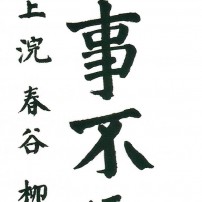 事不
上浣春谷柳